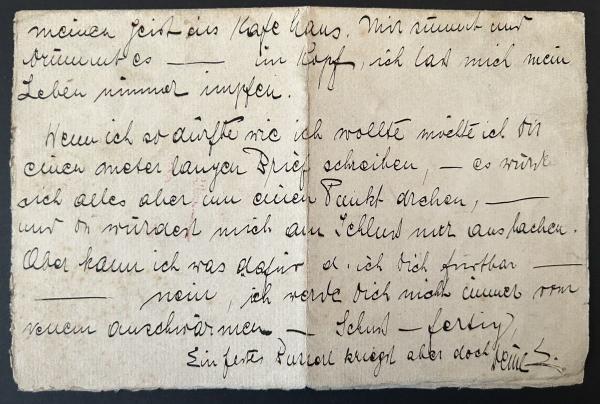 meinen Geist ins Kafe haus. Mir summt und
brummt es —— im Kopf, ich lass mich mein
Leben nimmer impfen.
Wenn ich so dürfte wie ich wollte möchte ich Dir
einen meter langen Brief schreiben, — es würde
sich alles aber um einen Punkt drehen, ——
und Du würdest mich am Schluss nur auslachen.
Aber kann ich was dafür d. ich Dich furtbar ——
—— nein, ich werde Dich nicht immer vom
neuem anschwärmen — Schluss — fertig
Ein festes Busserl kriegst aber doch